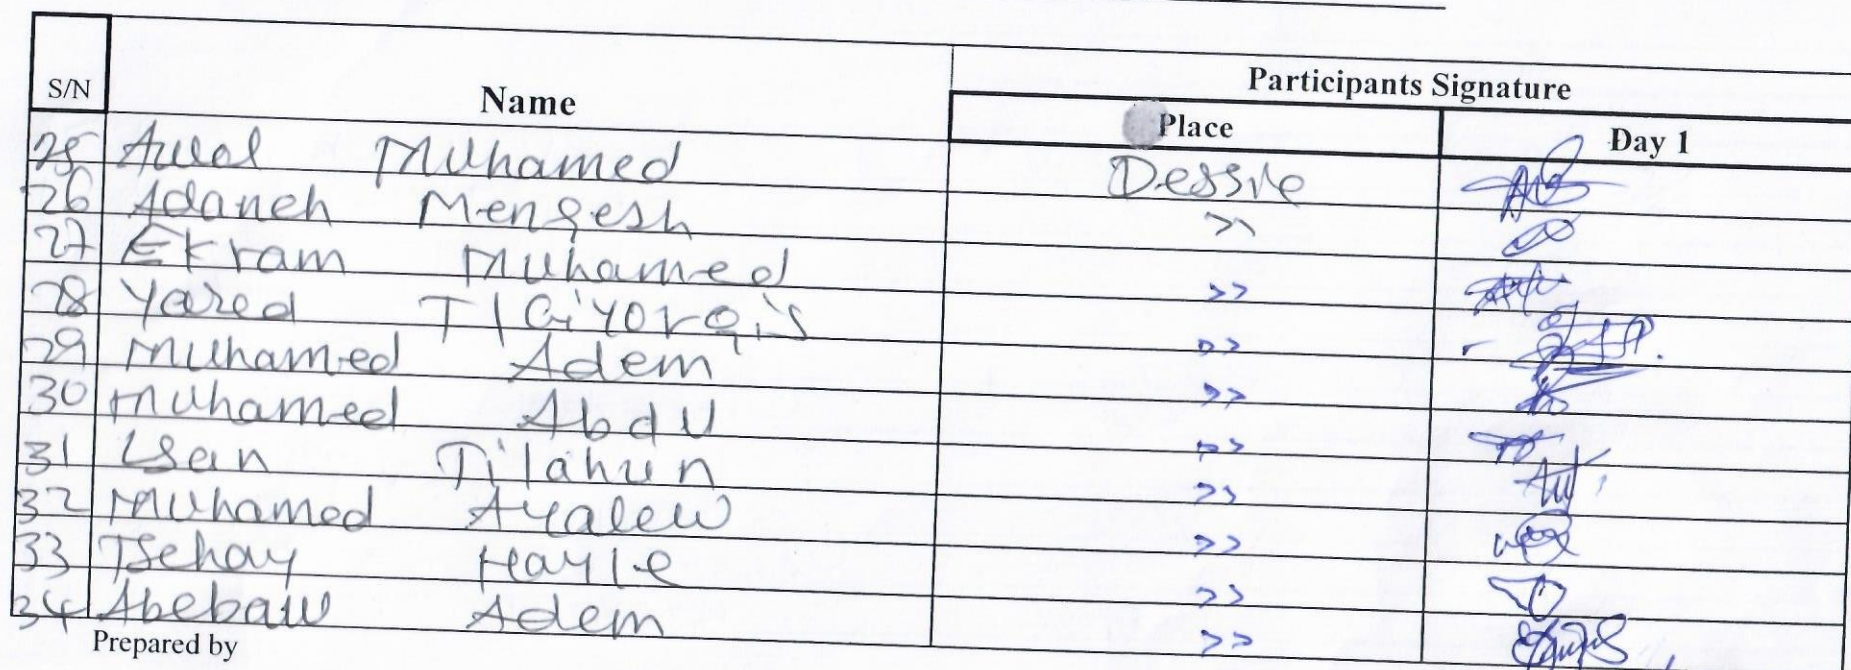 Participants Signature
S/N Name Place Day 1
25 Awol Muhamed Dessie
26 Adaneh Mengesh >>
27 Ekram Muhamed >>
28 Yared T/Giyorgis >>
29 Muhamed Adem >>
30 Muhamed Abdu >>
31 Tilahun >>
32 Muhamed Ayalew >>
33 Tsehay Hayle >>
34 Abebaw Adem >>
Prepared by